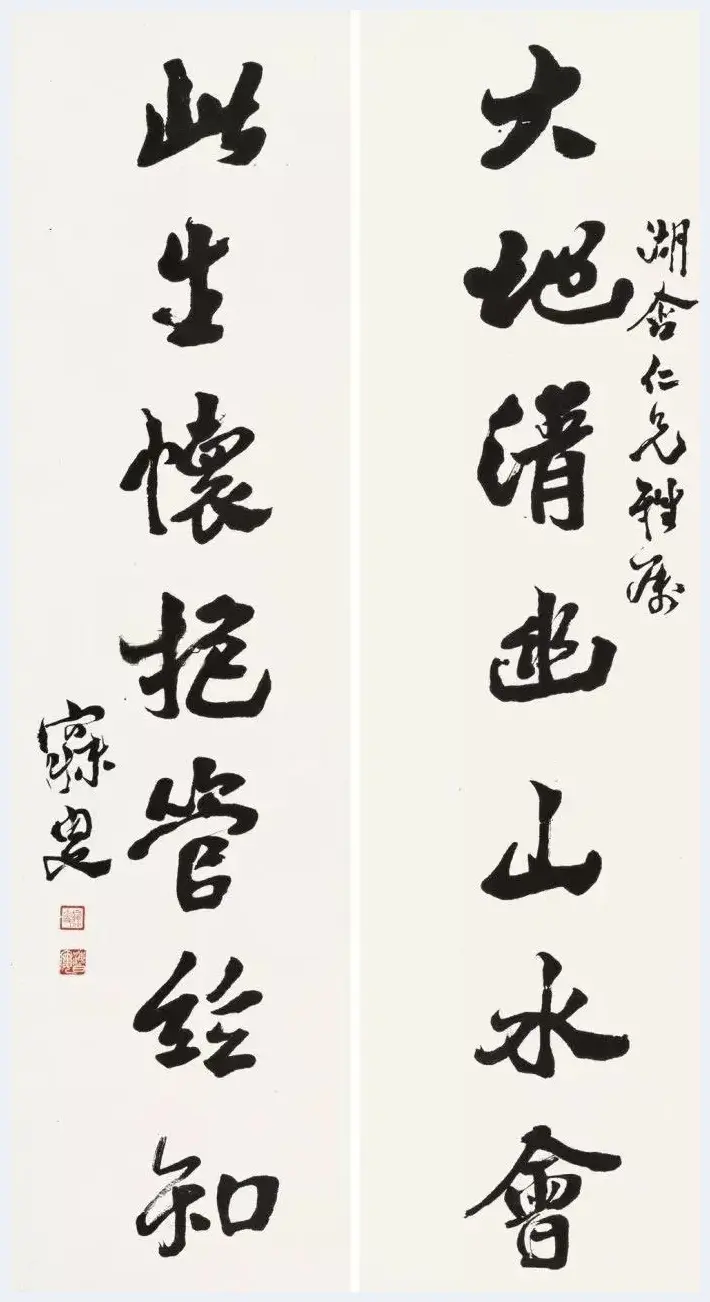 湖舍仁兄雅屬
大地清幽山水會
此生懷抱管絲知
寐叟